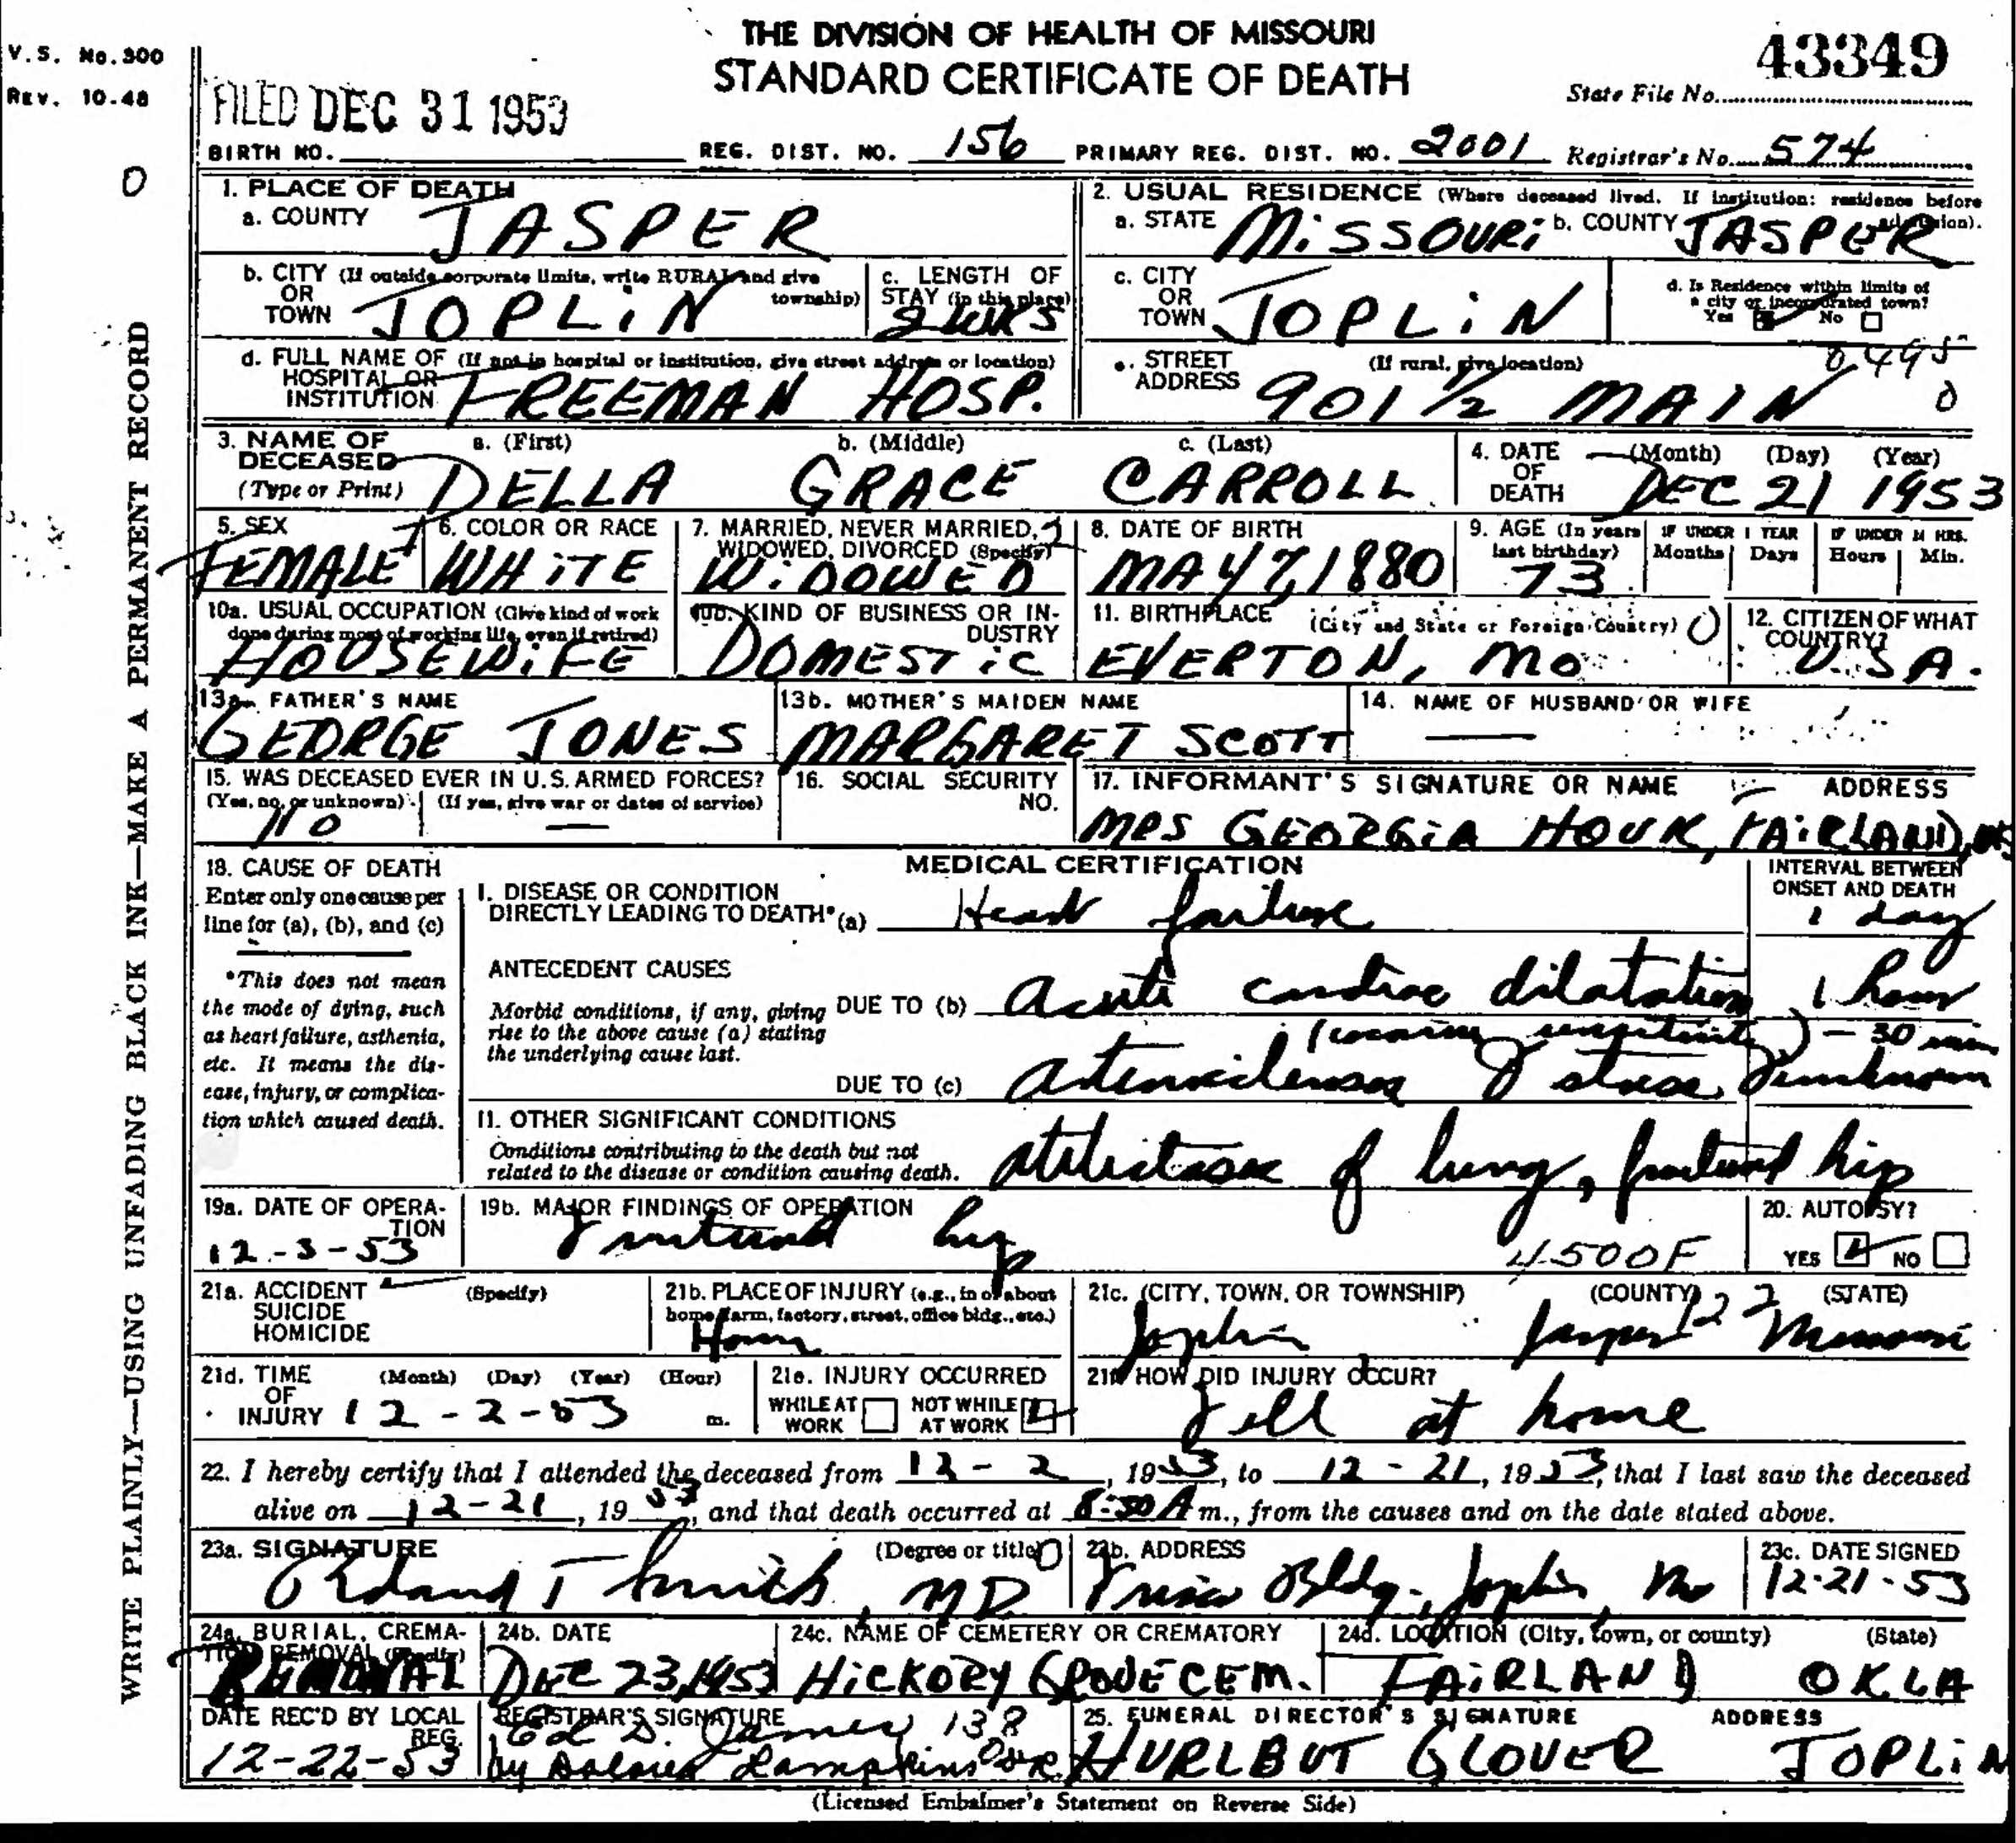 THE DIVISION OF HEALTH OF MISSOURI
STANDARD CERTIFICATE OF DEATH
V.S. No. 300
REV. 10-48
FILED DEC 31 1953
State File No. 43349
BIRTH NO. REG. DIST. NO. 156 PRIMARY REG. DIST. NO. 2001 Registrar's No. 574
WRITE PLAINLY—USING UNFADING BLACK INK—MAKE A PERMANENT RECORD
0
1. PLACE OF DEATH
a. COUNTY JASPER
2. USUAL RESIDENCE (Where deceased lived. If institution: residence before admission).
a. STATE MISSOURI b. COUNTY JASPER
b. CITY (If outside corporate limits, write RURAL and give township) OR TOWN JOPLIN
c. LENGTH OF STAY (in this place) 2 WKS
c. CITY OR TOWN JOPLIN
d. Is Residence within limits of a city or incorporated town? Yes No
d. FULL NAME OF (If not in hospital or institution, give street address or location) HOSPITAL OR INSTITUTION FREEMAN HOSP.
e. STREET ADDRESS (If rural, give location) 901 1/2 MAIN
0495
0
3. NAME OF DECEASED (Type or Print) a. (First) b. (Middle) c. (Last)
DELLA GRACE CARROLL
4. DATE OF DEATH (Month) (Day) (Year)
DEC 21 1953
5. SEX FEMALE
6. COLOR OR RACE WHITE
7. MARRIED, NEVER MARRIED, WIDOWED, DIVORCED (Specify) WIDOWED
8. DATE OF BIRTH MAY 7, 1880
9. AGE (In years last birthday) 73 IF UNDER 1 YEAR Months Days IF UNDER 24 HRS. Hours Min.
10a. USUAL OCCUPATION (Give kind of work done during most of working life, even if retired) HOUSEWIFE
10b. KIND OF BUSINESS OR INDUSTRY DOMESTIC
11. BIRTHPLACE (City and State or Foreign Country) EVERTON, MO
12. CITIZEN OF WHAT COUNTRY? U.S.A.
13a. FATHER'S NAME GEORGE JONES
13b. MOTHER'S MAIDEN NAME MARGARET SCOTT
14. NAME OF HUSBAND OR WIFE —
15. WAS DECEASED EVER IN U.S. ARMED FORCES? (Yes, no, or unknown) (If yes, give war or dates of service) no —
16. SOCIAL SECURITY NO.
17. INFORMANT'S SIGNATURE OR NAME ADDRESS
MRS GEORGIA HOUK, FAIRLAND,
18. CAUSE OF DEATH
Enter only one cause per line for (a), (b), and (c)
*This does not mean the mode of dying, such as heart failure, asthenia, etc. It means the disease, injury, or complication which caused death.
MEDICAL CERTIFICATION
INTERVAL BETWEEN ONSET AND DEATH
I. DISEASE OR CONDITION DIRECTLY LEADING TO DEATH* (a) Heart failure 1 day
ANTECEDENT CAUSES
Morbid conditions, if any, giving rise to the above cause (a) stating the underlying cause last.
DUE TO (b) Acute cardiac dilatation 1 hour
(cocaine sensitivity) - 30 min
DUE TO (c) unknown
II. OTHER SIGNIFICANT CONDITIONS
Conditions contributing to the death but not related to the disease or condition causing death.
Atelectasis of lung, fractured hip
19a. DATE OF OPERATION 12-3-53
19b. MAJOR FINDINGS OF OPERATION Fractured hip
4500F
20. AUTOPSY? YES NO
21a. ACCIDENT SUICIDE HOMICIDE (Specify)
21b. PLACE OF INJURY (e.g., in or about home, farm, factory, street, office bldg., etc.) Home
21c. (CITY, TOWN, OR TOWNSHIP) (COUNTY) (STATE)
Joplin Jasper Missouri
21d. TIME OF INJURY (Month) (Day) (Year) (Hour) 12-2-53 m.
21e. INJURY OCCURRED WHILE AT WORK NOT WHILE AT WORK
21f. HOW DID INJURY OCCUR? Fell at home
22. I hereby certify that I attended the deceased from 12-2, 1953, to 12-21, 1953, that I last saw the deceased
alive on 12-21, 1953, and that death occurred at 8:30 A m., from the causes and on the date stated above.
23a. SIGNATURE (Degree or title) T Smith, MD
23b. ADDRESS Frisco Bldg., Joplin, Mo
23c. DATE SIGNED 12-21-53
24a. BURIAL, CREMATION, REMOVAL (Specify) REMOVAL
24b. DATE DEC 23, 1953
24c. NAME OF CEMETERY OR CREMATORY HICKORY GROVE CEM.
24d. LOCATION (City, town, or county) (State) FAIRLAND OKLA
DATE REC'D BY LOCAL REG. 12-22-53
REGISTRAR'S SIGNATURE Ed D. James 138
by Lampkins
25. FUNERAL DIRECTOR'S SIGNATURE ADDRESS
HURLBUT GLOVER JOPLIN
(Licensed Embalmer's Statement on Reverse Side)